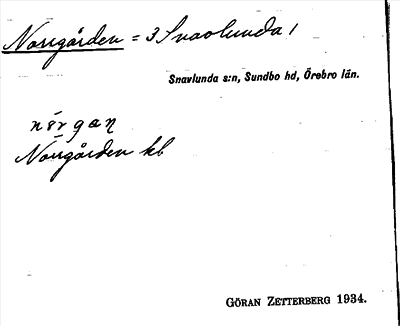 Norrgården = 3 Snavlunda 1
Snavlunda s:n, Sundbo hd, Örebro län.
nörgan
Norrgården kb
GÖRAN ZETTERBERG 1934.